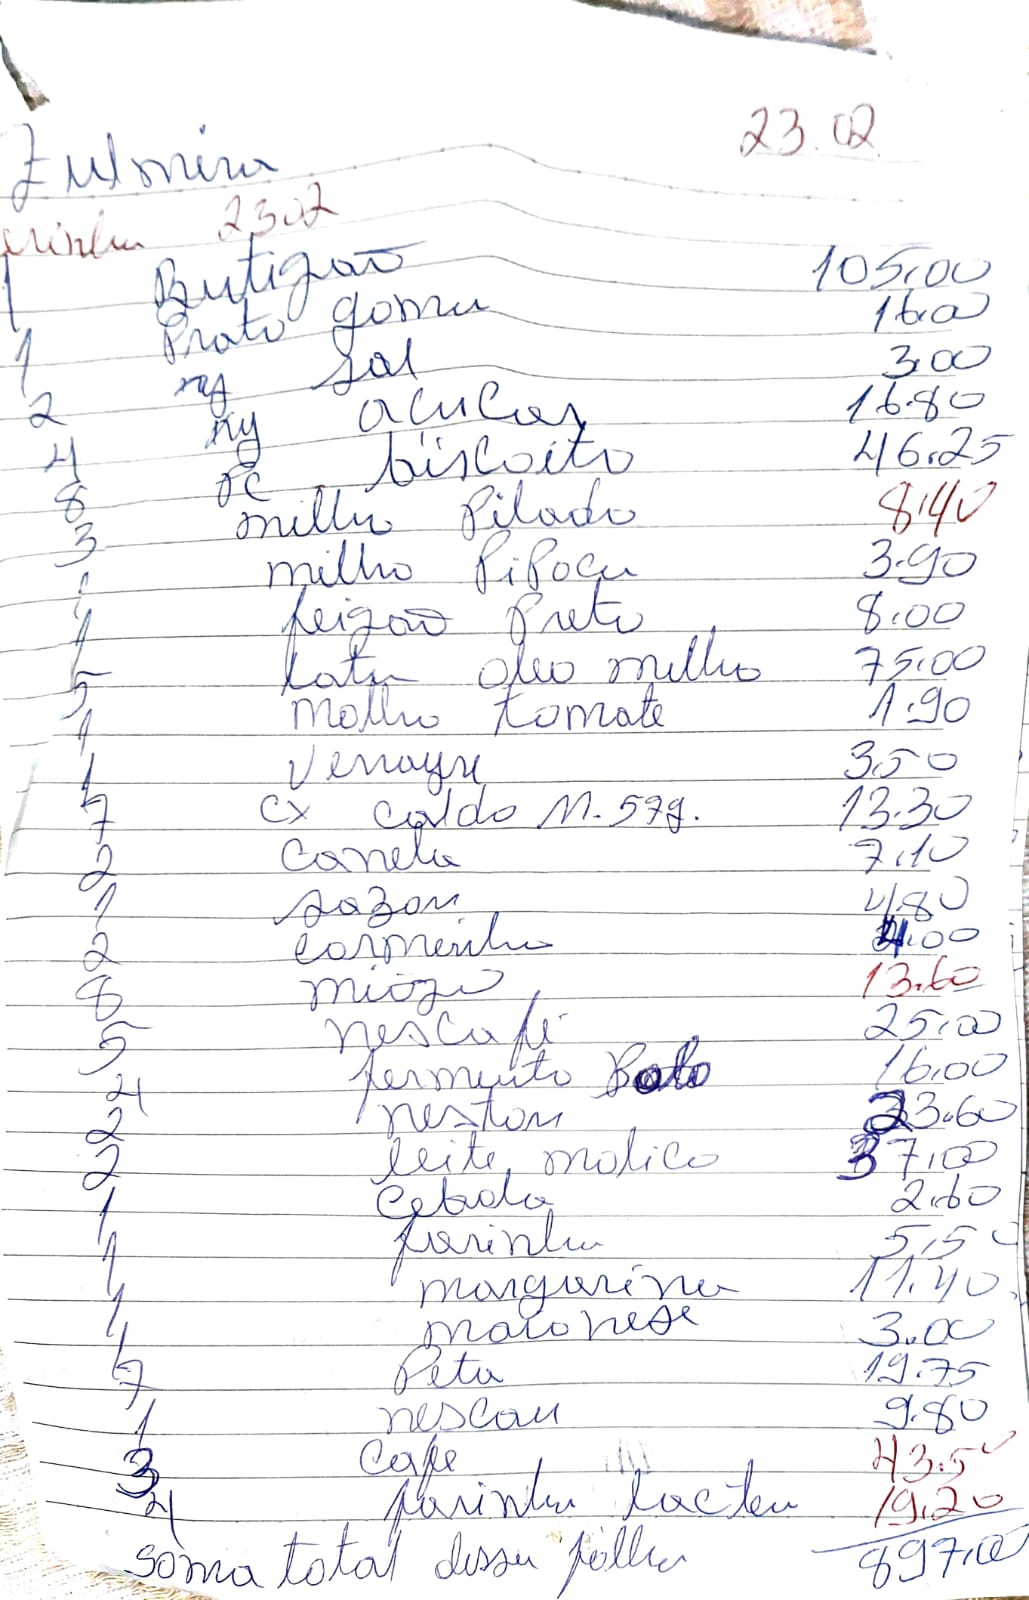 23.02
Zulmira
2302
1 Butigão 105,00
1 Prato goma 16.00
2 kg sal 3.00
4 kg açucar 16.80
8 pc biscoito 46.25
3 milho Pilado 8.40
1 milho PiPoca 3.90
1 feizão Preto 8.00
5 lata oleo milho 75.00
1 Molho tomate 1.90
1 Venagre 3.50
7 cx caldo M. 57g. 13.30
2 Canela 7.10
1 sazon 4.80
2 corminho 4.00
8 miozo 13.60
5 nescafé 25.00
4 fermento Bolo 16.00
2 neston 23.60
2 leite molico 37,00
1 Cebada 2.60
1 farinha 5,50
1 margarina 11.40
1 maionese 3.00
7 Peta 19.75
1 nescau 9.80
3 Cafe 43.50
4 farinha lactea 19.20
soma total dessa folha 897,00